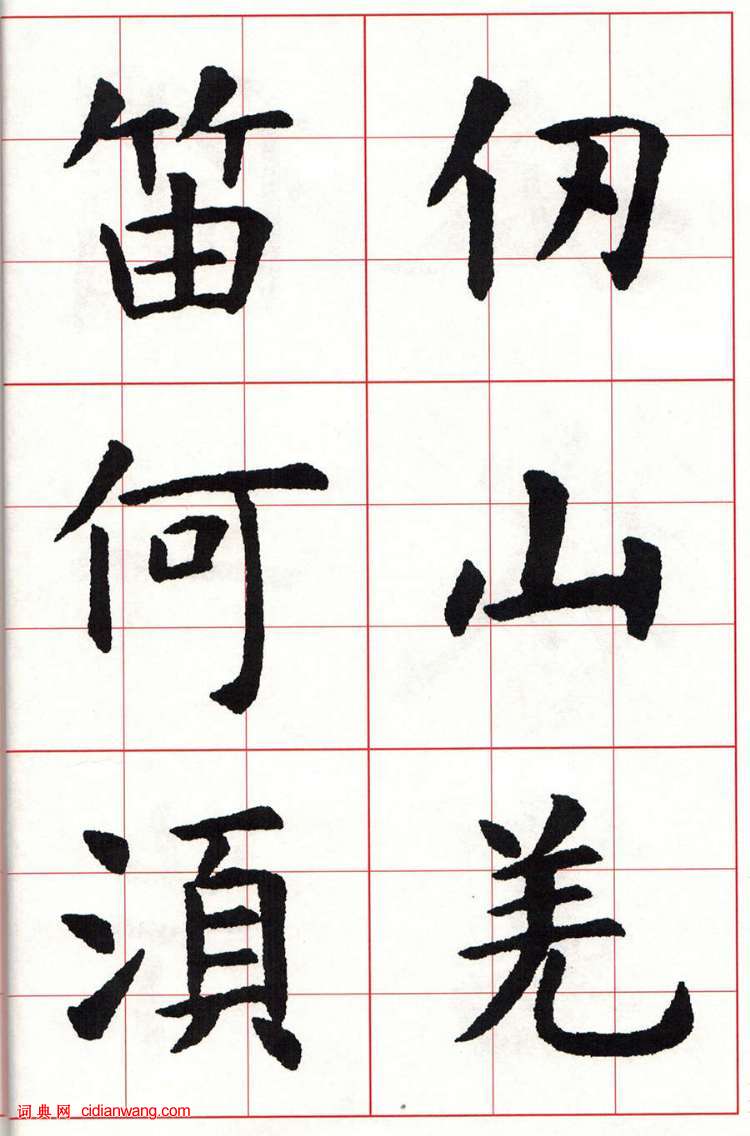 仞山羌
笛何湏
词典网 cidianwang.com